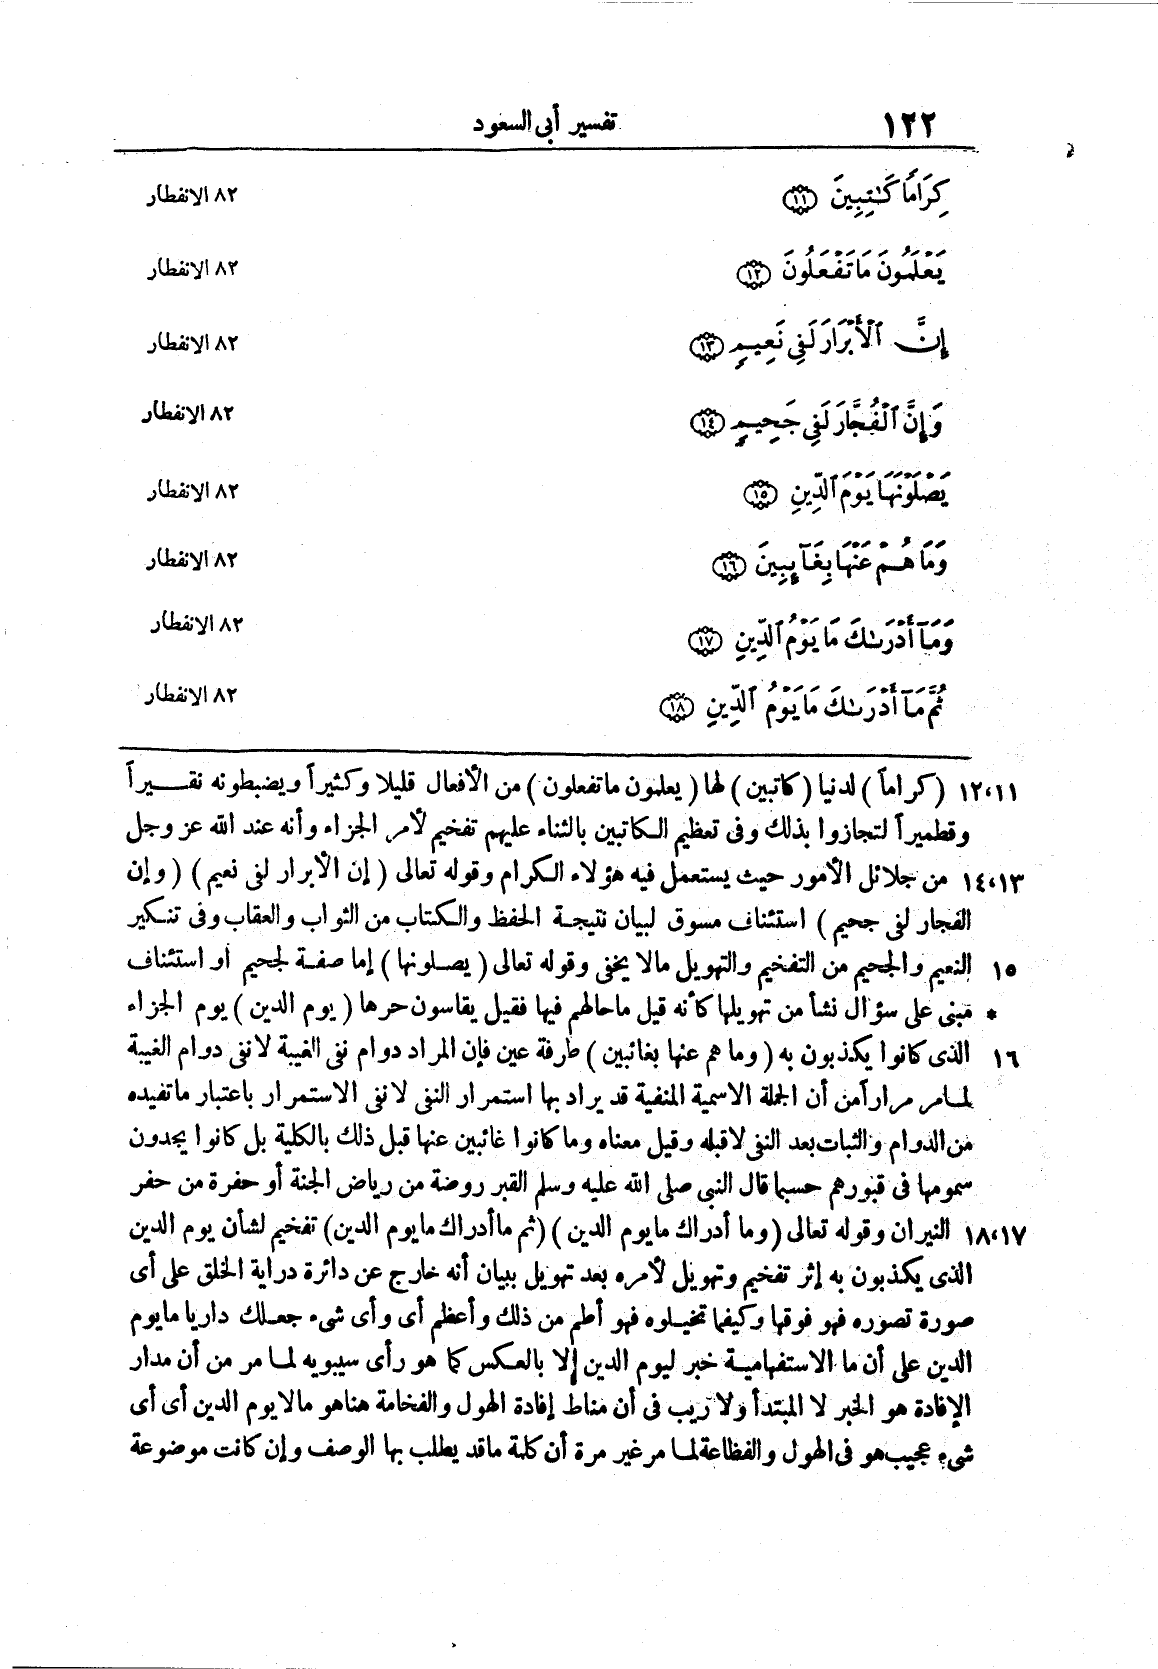 ١٢٢ تفسير أبى السعود
كِرَامًا كَٰتِبِينَ ١١ ٨٢ الانفطار
يَعْلَمُونَ مَا تَفْعَلُونَ ١٢ ٨٢ الانفطار
إِنَّ ٱلْأَبْرَارَ لَفِى نَعِيمٍ ١٣ ٨٢ الانفطار
وَإِنَّ ٱلْفُجَّارَ لَفِى جَحِيمٍ ١٤ ٨٢ الانفطار
يَصْلَوْنَهَا يَوْمَ ٱلدِّينِ ١٥ ٨٢ الانفطار
وَمَا هُمْ عَنْهَا بِغَآئِبِينَ ١٦ ٨٢ الانفطار
وَمَآ أَدْرَىٰكَ مَا يَوْمُ ٱلدِّينِ ١٧ ٨٢ الانفطار
ثُمَّ مَآ أَدْرَىٰكَ مَا يَوْمُ ٱلدِّينِ ١٨ ٨٢ الانفطار
١٢،١١ (كراماً) لدنيا (كاتبين) لها (يعلمون ماتفعلون) من الأفعال قليلا وكثيراً ويضبطونه نقــيراً
وقطميراً لتجازوا بذلك وفى تعظيم الكاتبين بالثناء عليهم تفخيم لأمر الجزاء وأنه عند الله عز وجل
١٤،١٣ من جلائل الأمور حيث يستعمل فيه هؤلاء الكرام وقوله تعالى (إن الأبرار لفى نعيم) (وإن
الفجار لفى جحيم) استئناف مسوق لبيان نتيجة الحفظ والكتاب من الثواب والعقاب وفى تنكير
١٥ النعيم والجحيم من التفخيم والتهويل مالا يخفى وقوله تعالى (يصلونها) إما صفة لجحيم او استئناف
* مبنى على سؤال نشأ من تهويلها كأنه قيل ماحالهم فيها فقيل يقاسون حرها (يوم الدين) يوم الجزاء
١٦ الذى كانوا يكذبون به (وما هم عنها بغائبين) طرفة عين فإن المراد دوام نفى الغيبة لا نفى دوام الغيبة
لما مر مراراً من أن الجملة الاسمية المنفية قد يراد بها استمرار النفى لا نفى الاستمرار باعتبار ماتفيده
من الدوام والثبات بعد النفى لا قبله وقيل معناه وما كانوا غائبين عنها قبل ذلك بالكلية بل كانوا يجدون
سمومها فى قبورهم حسبما قال النبى صلى الله عليه وسلم القبر روضة من رياض الجنة أو حفرة من حفر
١٨،١٧ النيران وقوله تعالى (وما أدراك مايوم الدين) (ثم ماأدراك مايوم الدين) تفخيم لشأن يوم الدين
الذى يكذبون به إثر تفخيم وتهويل لأمره بعد تهويل ببيان أنه خارج عن دائرة دراية الخلق على أى
صورة تصوره فهو فوقها وكيفما تخيلوه فهو أطم من ذلك وأعظم أى وأى شىء جعلك داريا مايوم
الدين على أن ما الاستفهامية خبر ليوم الدين لا بالعكس كما هو رأى سيبويه لما مر من أن مدار
الإفادة هو الخبر لا المبتدأ ولا ريب فى أن مناط إفادة الهول والفخامة هنا هو ما لا يوم الدين أى أى
شىء عجيب هو فى الهول والفظاعة لما مر غير مرة أن كلمة ما قد يطلب بها الوصف وإن كانت موضوعة